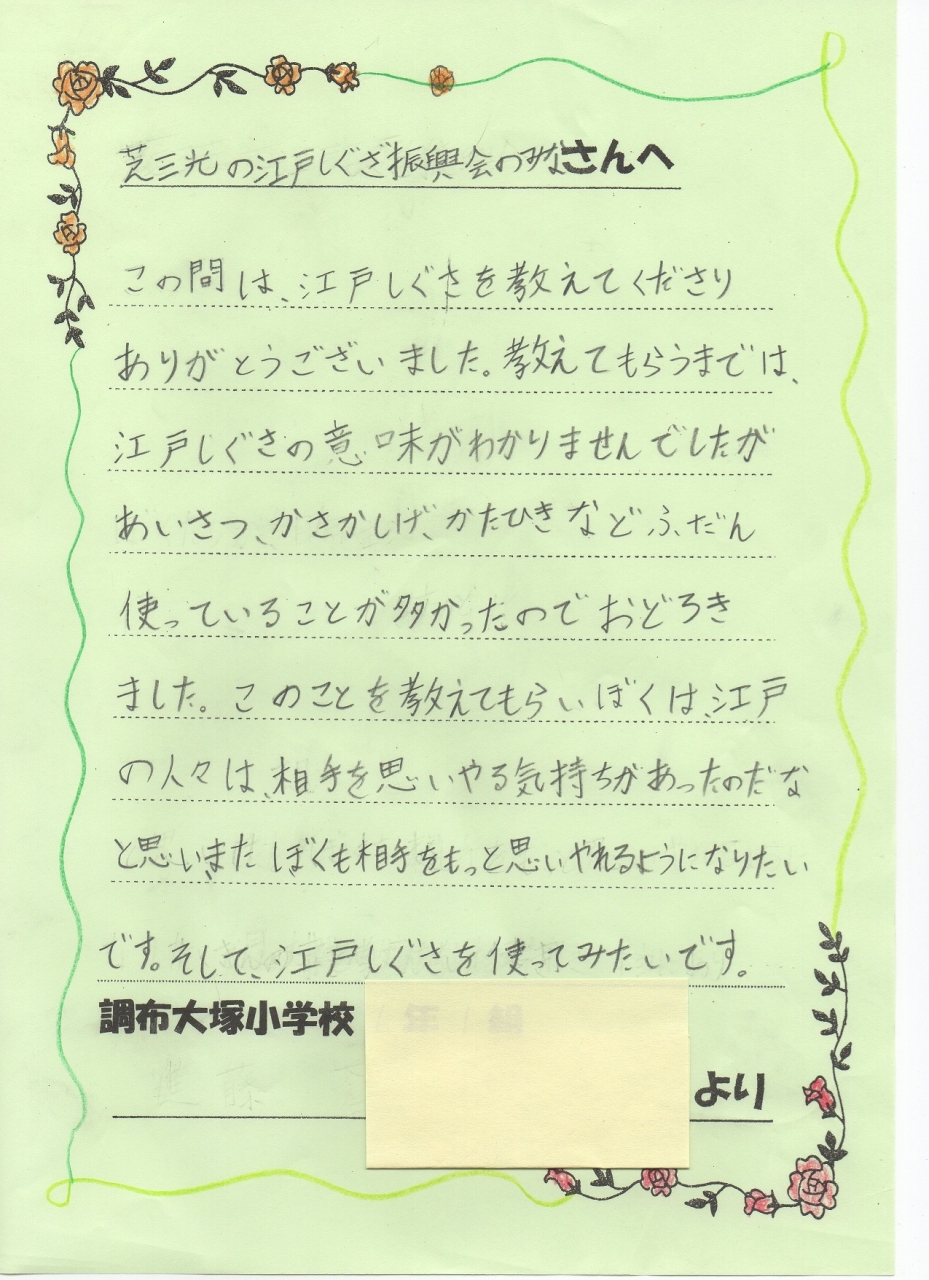 芝三光の江戸しぐさ振興会のみなさんへ
この間は、江戸しぐさを教えてくださり
ありがとうございました。教えてもらうまでは、
江戸しぐさの意味がわかりませんでしたが
あいさつ、かさかしげ、かたひきなどふだん
使っていることが多かったのでおどろき
ました。このことを教えてもらいぼくは、江戸
の人々は、相手を思いやる気持ちがあったのだな
と思いまたぼくも相手をもっと思いやれるようになりたい
です。そして、江戸しぐさを使ってみたいです。
調布大塚小学校
より